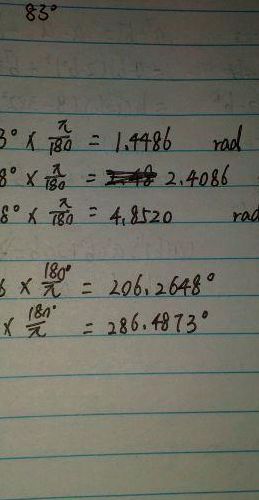 83°
3° × π/180 = 1.4486 rad
8° × π/180 = 2.4086
8° × π/180 = 4.8520 rad
6 × 180°/π = 206.2648°
× 180°/π = 286.4873°